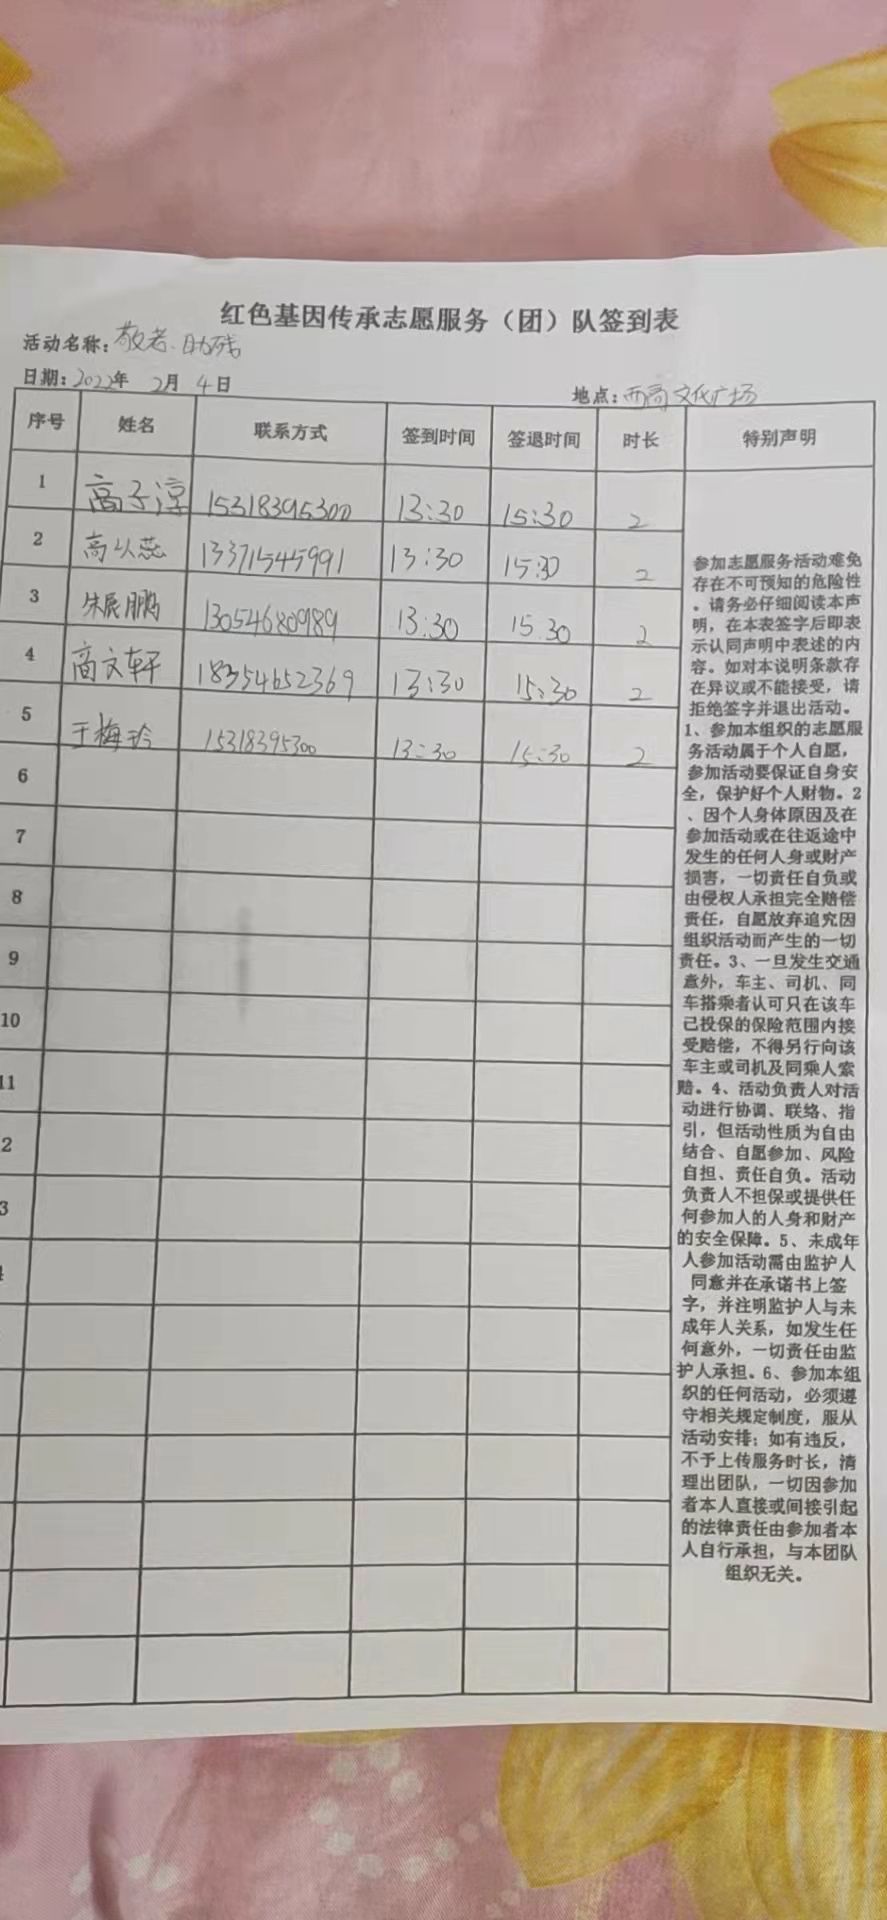 红色基因传承志愿服务（团）队签到表
活动名称：敬老、助残
日期：2022年 2月 4日
地点：西商文化广场
序号 姓名 联系方式 签到时间 签退时间 时长 特别声明
1 高子淳 15318395300 13:30 15:30 2
2 高以蕊 13371545991 13:30 15:30 2
3 朱辰鹏 13054680989 13:30 15:30 2
4 商文轩 18354652369 13:30 15:30 2
5 王梅玲 15318395300 13:30 15:30 2
6
7
8
9
10
11
2
3
参加志愿服务活动难免
存在不可预知的危险性
。请务必仔细阅读本声
明，在本表签字后即表
示认同声明中表述的内
容。如对本说明条款存
在异议或不能接受，请
拒绝签字并退出活动。
1、参加本组织的志愿服
务活动属于个人自愿，
参加活动要保证自身安
全，保护好个人财物。2
、因个人身体原因及在
参加活动或在往返途中
发生的任何人身或财产
损害，一切责任自负或
由侵权人承担完全赔偿
责任，自愿放弃追究因
组织活动而产生的一切
责任。3、一旦发生交通
意外，车主、司机、同
车搭乘者认可只在该车
已投保的保险范围内接
受赔偿，不得另行向该
车主或司机及同乘人索
赔。4、活动负责人对活
动进行协调、联络、指
引，但活动性质为自由
结合、自愿参加、风险
自担、责任自负。活动
负责人不担保或提供任
何参加人的人身和财产
的安全保障。5、未成年
人参加活动需由监护人
同意并在承诺书上签
字，并注明监护人与未
成年人关系，如发生任
何意外，一切责任由监
护人承担。6、参加本组
织的任何活动，必须遵
守相关规定制度，服从
活动安排；如有违反，
不予上传服务时长，清
理出团队，一切因参加
者本人直接或间接引起
的法律责任由参加者本
人自行承担，与本团队
组织无关。